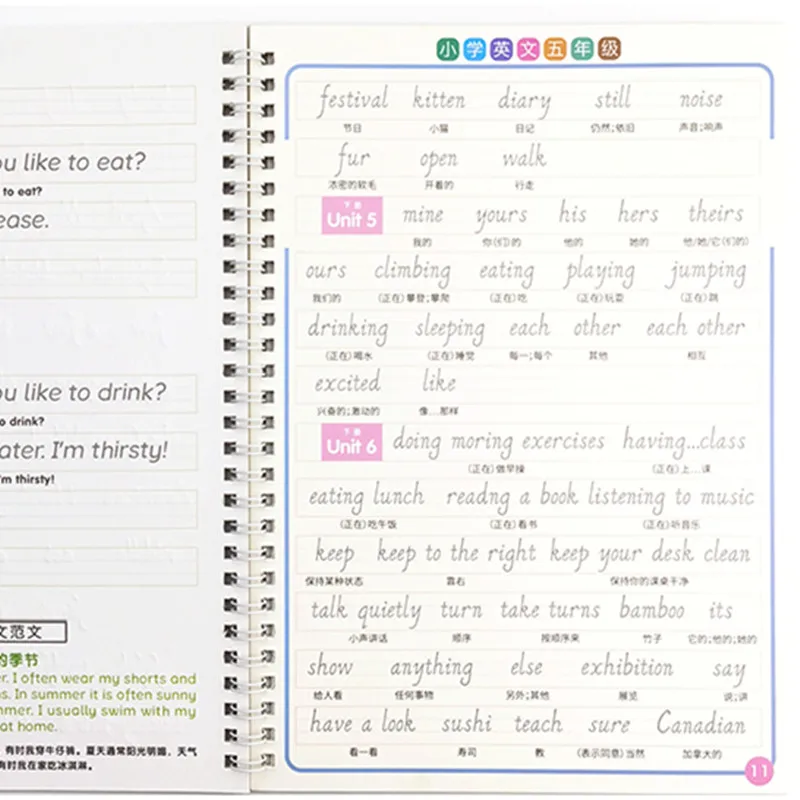 ou like to eat?
to eat?
ease.
ou like to drink?
o drink?
ater. I'm thirsty!
'm thirsty!
文范文
的季节
r. I often wear my shorts and
s. In summer it is often sunny
mmer. I usually swim with my
at home.
有时我穿牛仔裤。夏天通常阳光明媚,天气
有时我在家吃冰淇淋。
小学英文五年级
festival kitten diary still noise
节日 小猫 日记 仍然;依旧 声音;响声
fur open walk
浓密的软毛 开着的 行走
下册
Unit 5 mine yours his hers theirs
我的 你(们)的 他的 她的 他/她/它(们的)
ours climbing eating playing jumping
我们的 (正在)攀登;攀爬 (正在)吃 (正在)玩耍 (正在)跳
drinking sleeping each other each other
(正在)喝水 (正在)睡觉 每一;每个 其他 相互
excited like
兴奋的;激动的 像…那样
下册
Unit 6 doing moring exercises having...class
(正在)做早操 (正在)上…课
eating lunch readng a book listening to music
(正在)吃午饭 (正在)看书 (正在)听音乐
keep keep to the right keep your desk clean
保持某种状态 靠右 保持你的课桌干净
talk quietly turn take turns bamboo its
小声讲话 顺序 按顺序来 竹子 它的;他的;她的
show anything else exhibition say
给人看 任何事物 另外;其他 展览 说;讲
have a look sushi teach sure Canadian
看一看 寿司 教 (表示同意)当然 加拿大的
11